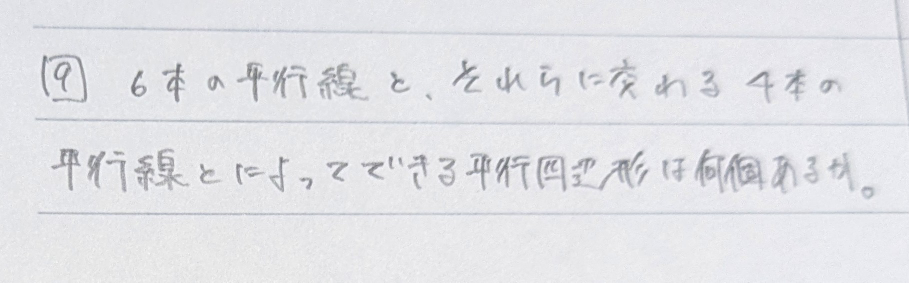 [9] 6本の平行線と、それらに交わる4本の
平行線とによってできる平行四辺形は何個あるか。